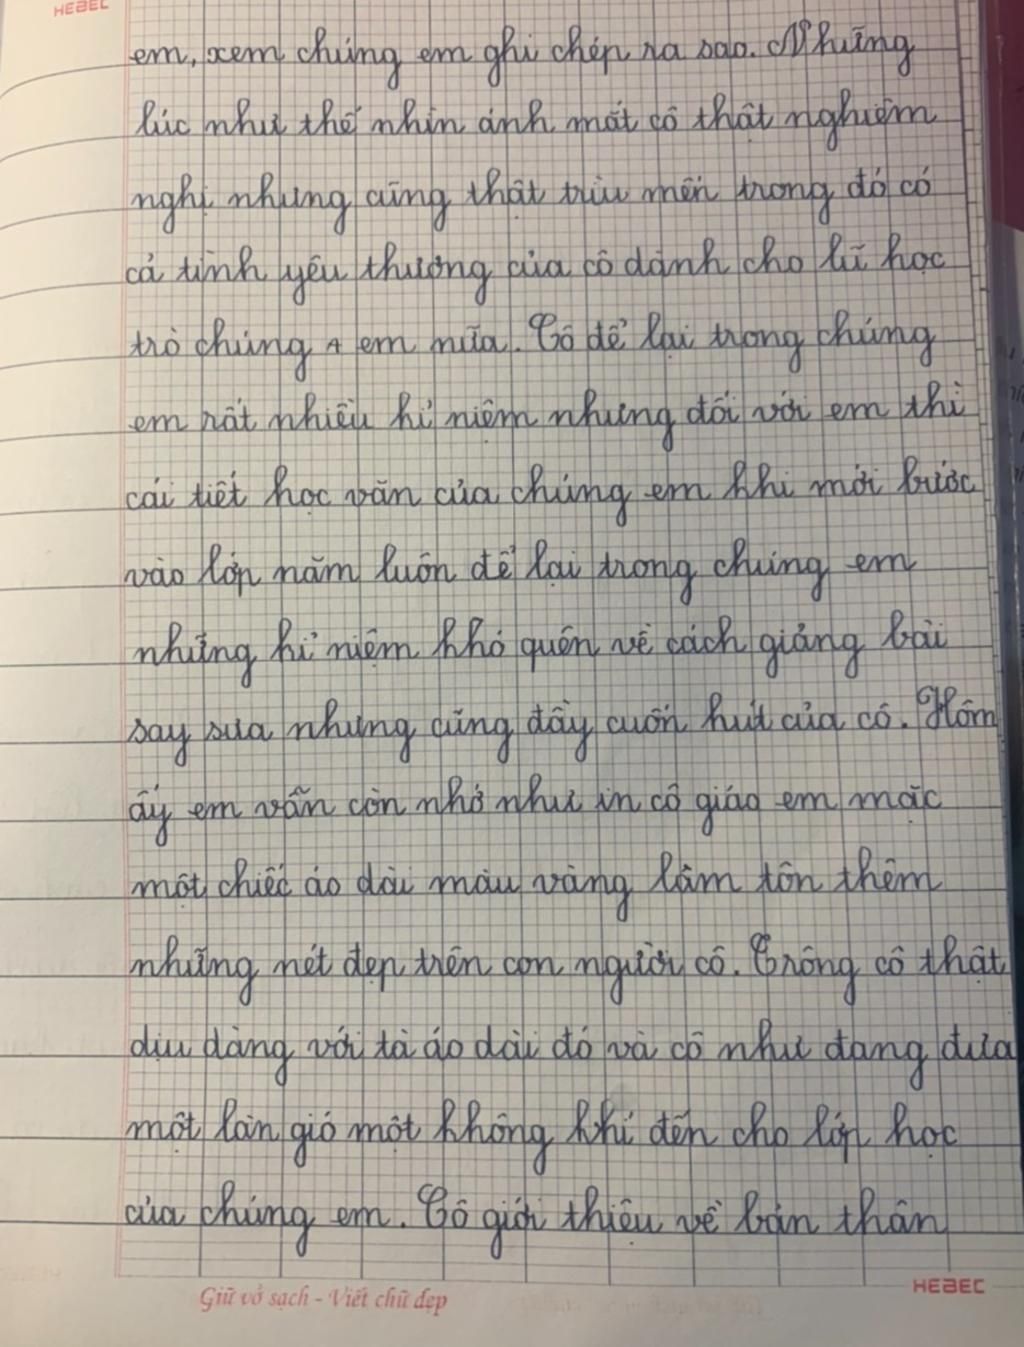 HEBEC
em, xem chúng em ghi chép ra sao. Những
lúc như thế nhìn ánh mắt cô thật nghiêm
nghị nhưng cũng thật trìu mến trong đó có
cả tình yêu thương của cô dành cho lũ học
trò chúng em nữa. Cô để lại trong chúng
em rất nhiều kỉ niệm nhưng đối với em thì
cái tiết học văn của chúng em khi mới bước
vào lớp năm luôn để lại trong chúng em
những kỉ niệm khó quên về cách giảng bài
say sưa nhưng cũng đầy cuốn hút của cô. Hôm
ấy em vẫn còn nhớ như in cô giáo em mặc
một chiếc áo dài màu vàng làm tôn thêm
những nét đẹp trên con người cô. Trông cô thật
dịu dàng với tà áo dài đó và cô như đang đưa
một làn gió một không khí đến cho lớp học
của chúng em. Cô giới thiệu về bản thân
Giữ vở sạch - Viết chữ đẹp
HEBEC